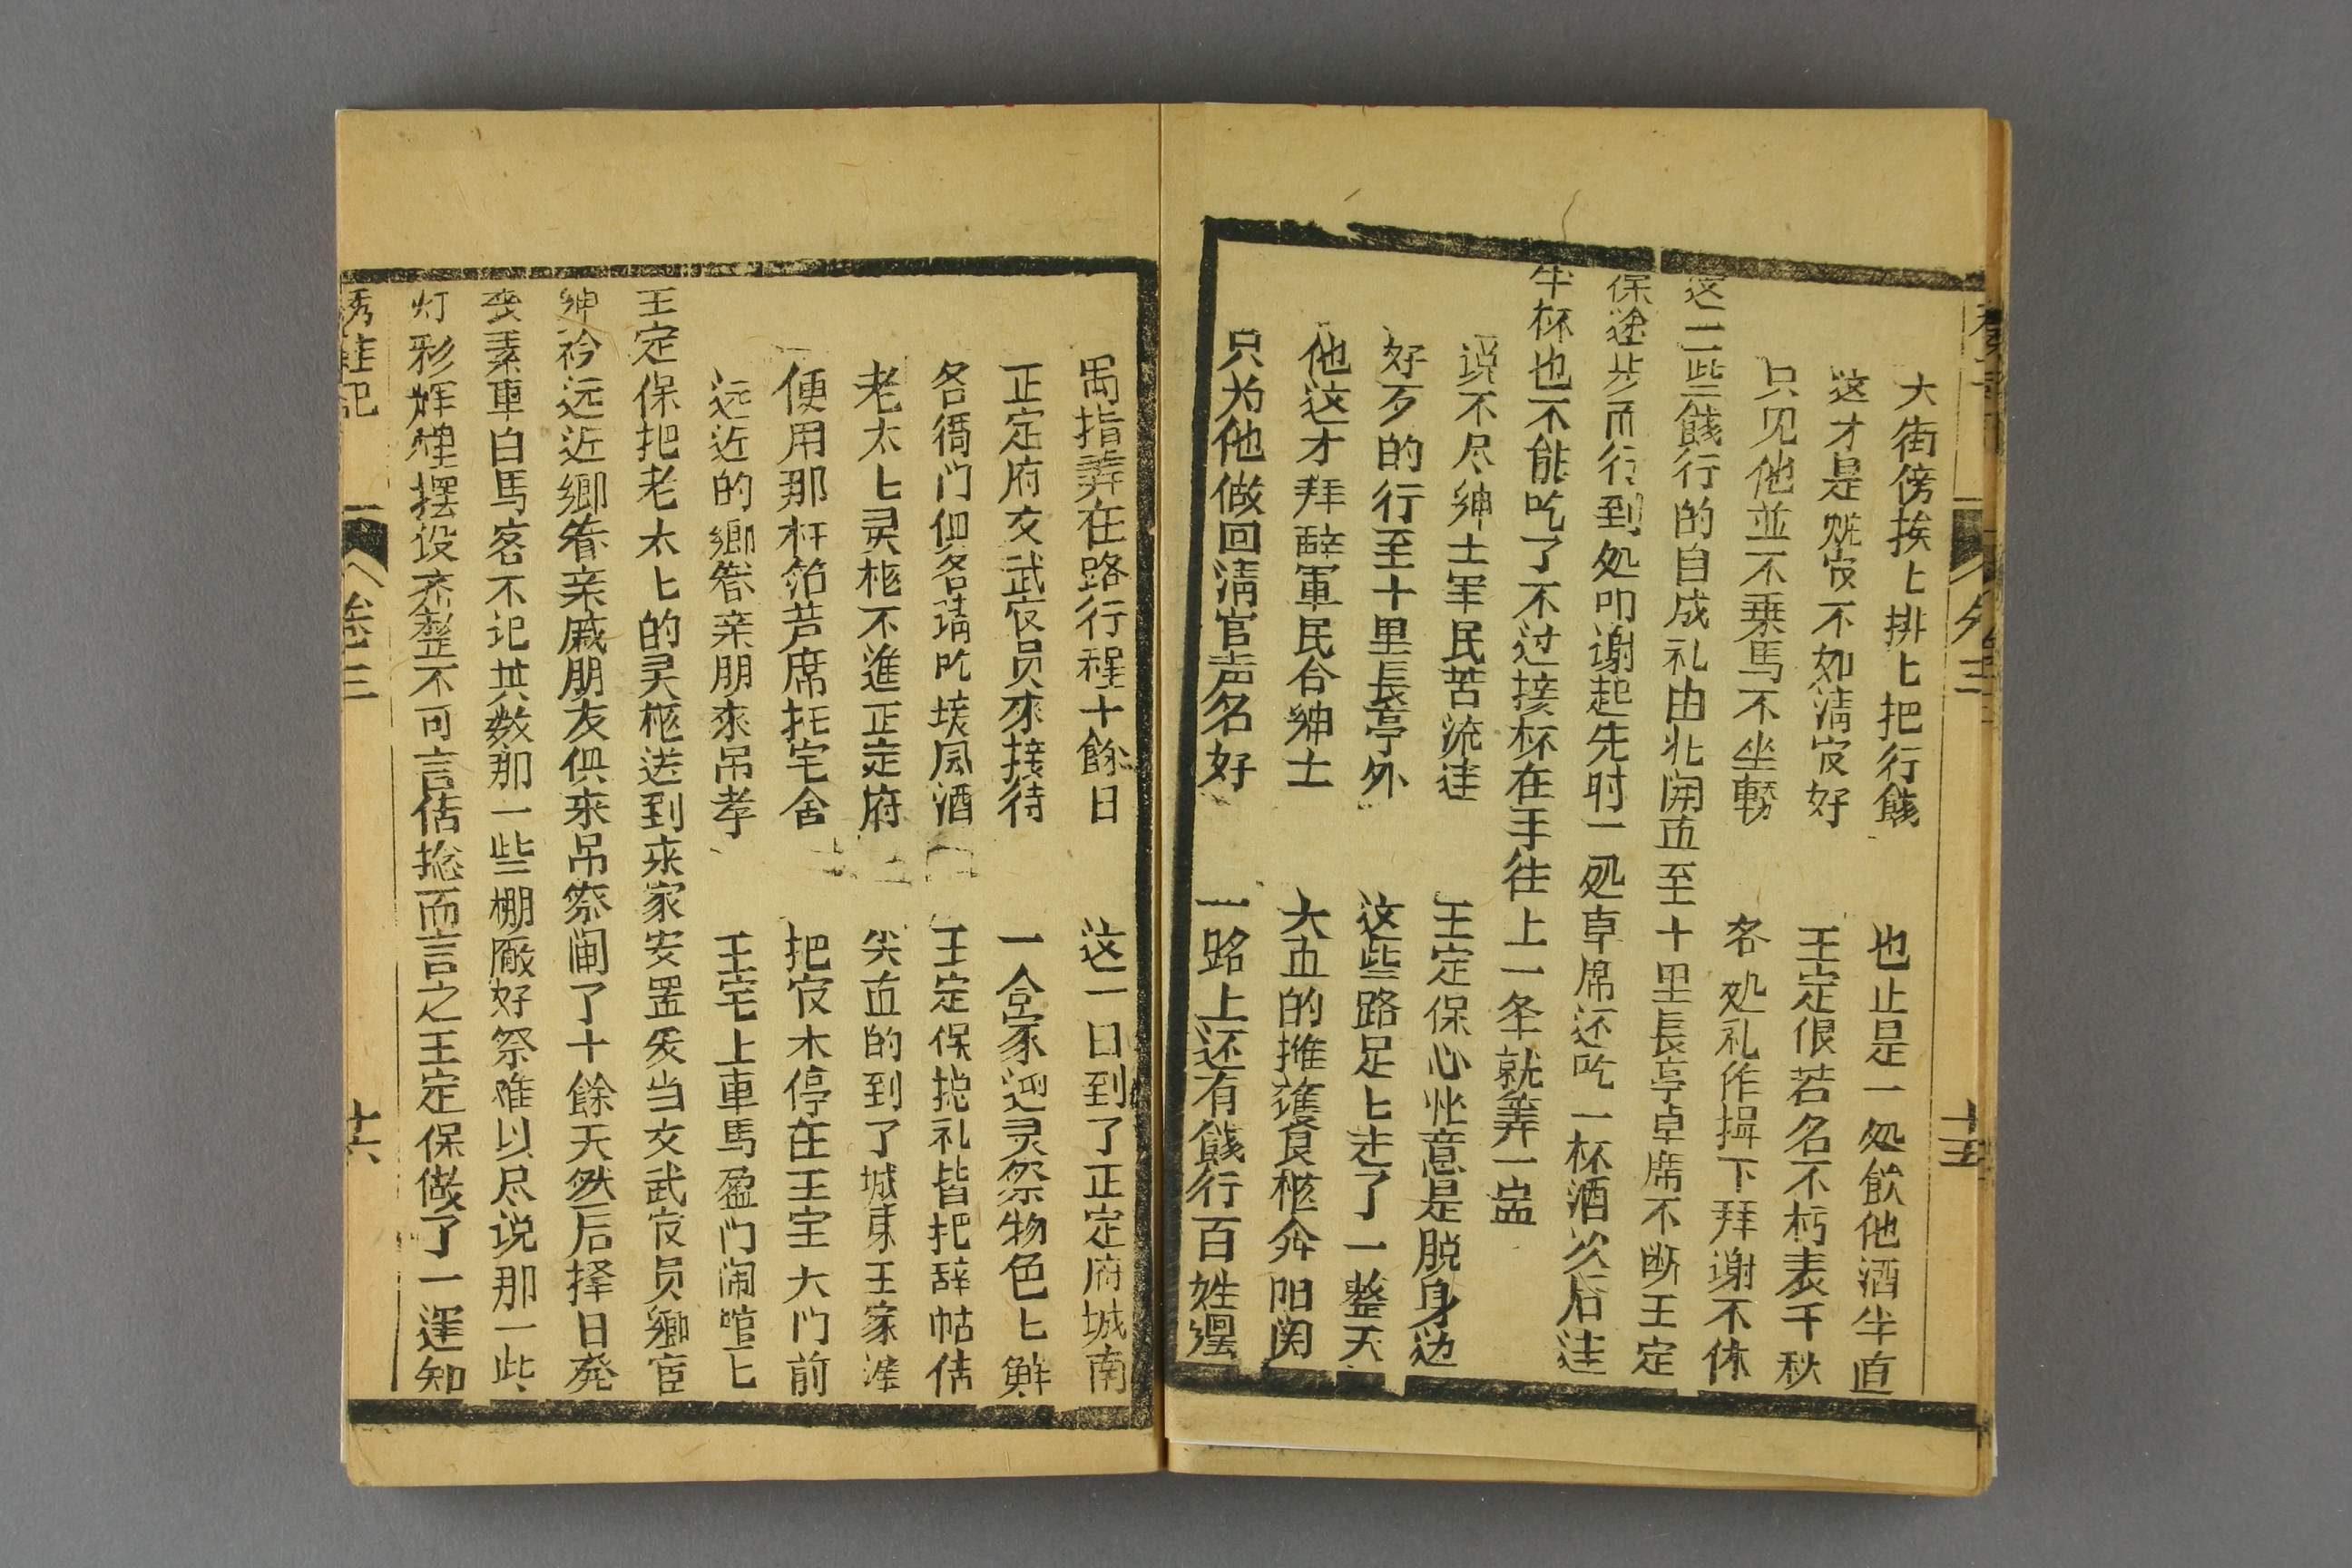 大街傍挨匕排匕把行餞　也止是一処飲他酒半直
这才是賍官不如清官好　王定保若名不朽表千秋
只见他並不乗馬不坐轎　各処礼作揖下拜谢不休
这一些餞行的自成礼由北関直至十里長亭卓席不断王定
保途步而行到処叩谢起先时一処卓席还吃一杯酒次后连
半杯也不能吃了不过接杯在手往上一举就筭一盅
说不尽紳士军民苦流连　王定保心忙意是脱身边
好歹的行至十里長亭外　这些路足匕走了一整天
他这才拜辞軍民合紳士　大直的推進食柩奔阳関
只为他做回清官声名好　一路上还有餞行百姓
禺指筭在路行程十餘日　这一日到了正定府城南
正定府文武官员来接待　一合家迎灵祭物色匕鮮
各衙门俱各請吃接風酒　王定保捴礼皆把辞帖
老太匕灵柩不進正定府　尖直的到了城東王家
便用那杆箔芦席托宅舍　把官木停在王宅大门前
远近的鄉眷亲朋来吊孝　王宅上車馬盈门闹喧匕
王定保把老太匕的灵柩送到来家安置妥当文武官员鄉宦
紳衿远近鄉眷亲戚朋友俱来吊祭闹了十餘天然后择日発
丧素車白馬客不记其数那一些棚廠好祭难以尽说那一些
灯彩辉煌摆设齐整不可言估捴而言之王定保做了一連知
绣鞋记　卷三　十六
卷三　十五